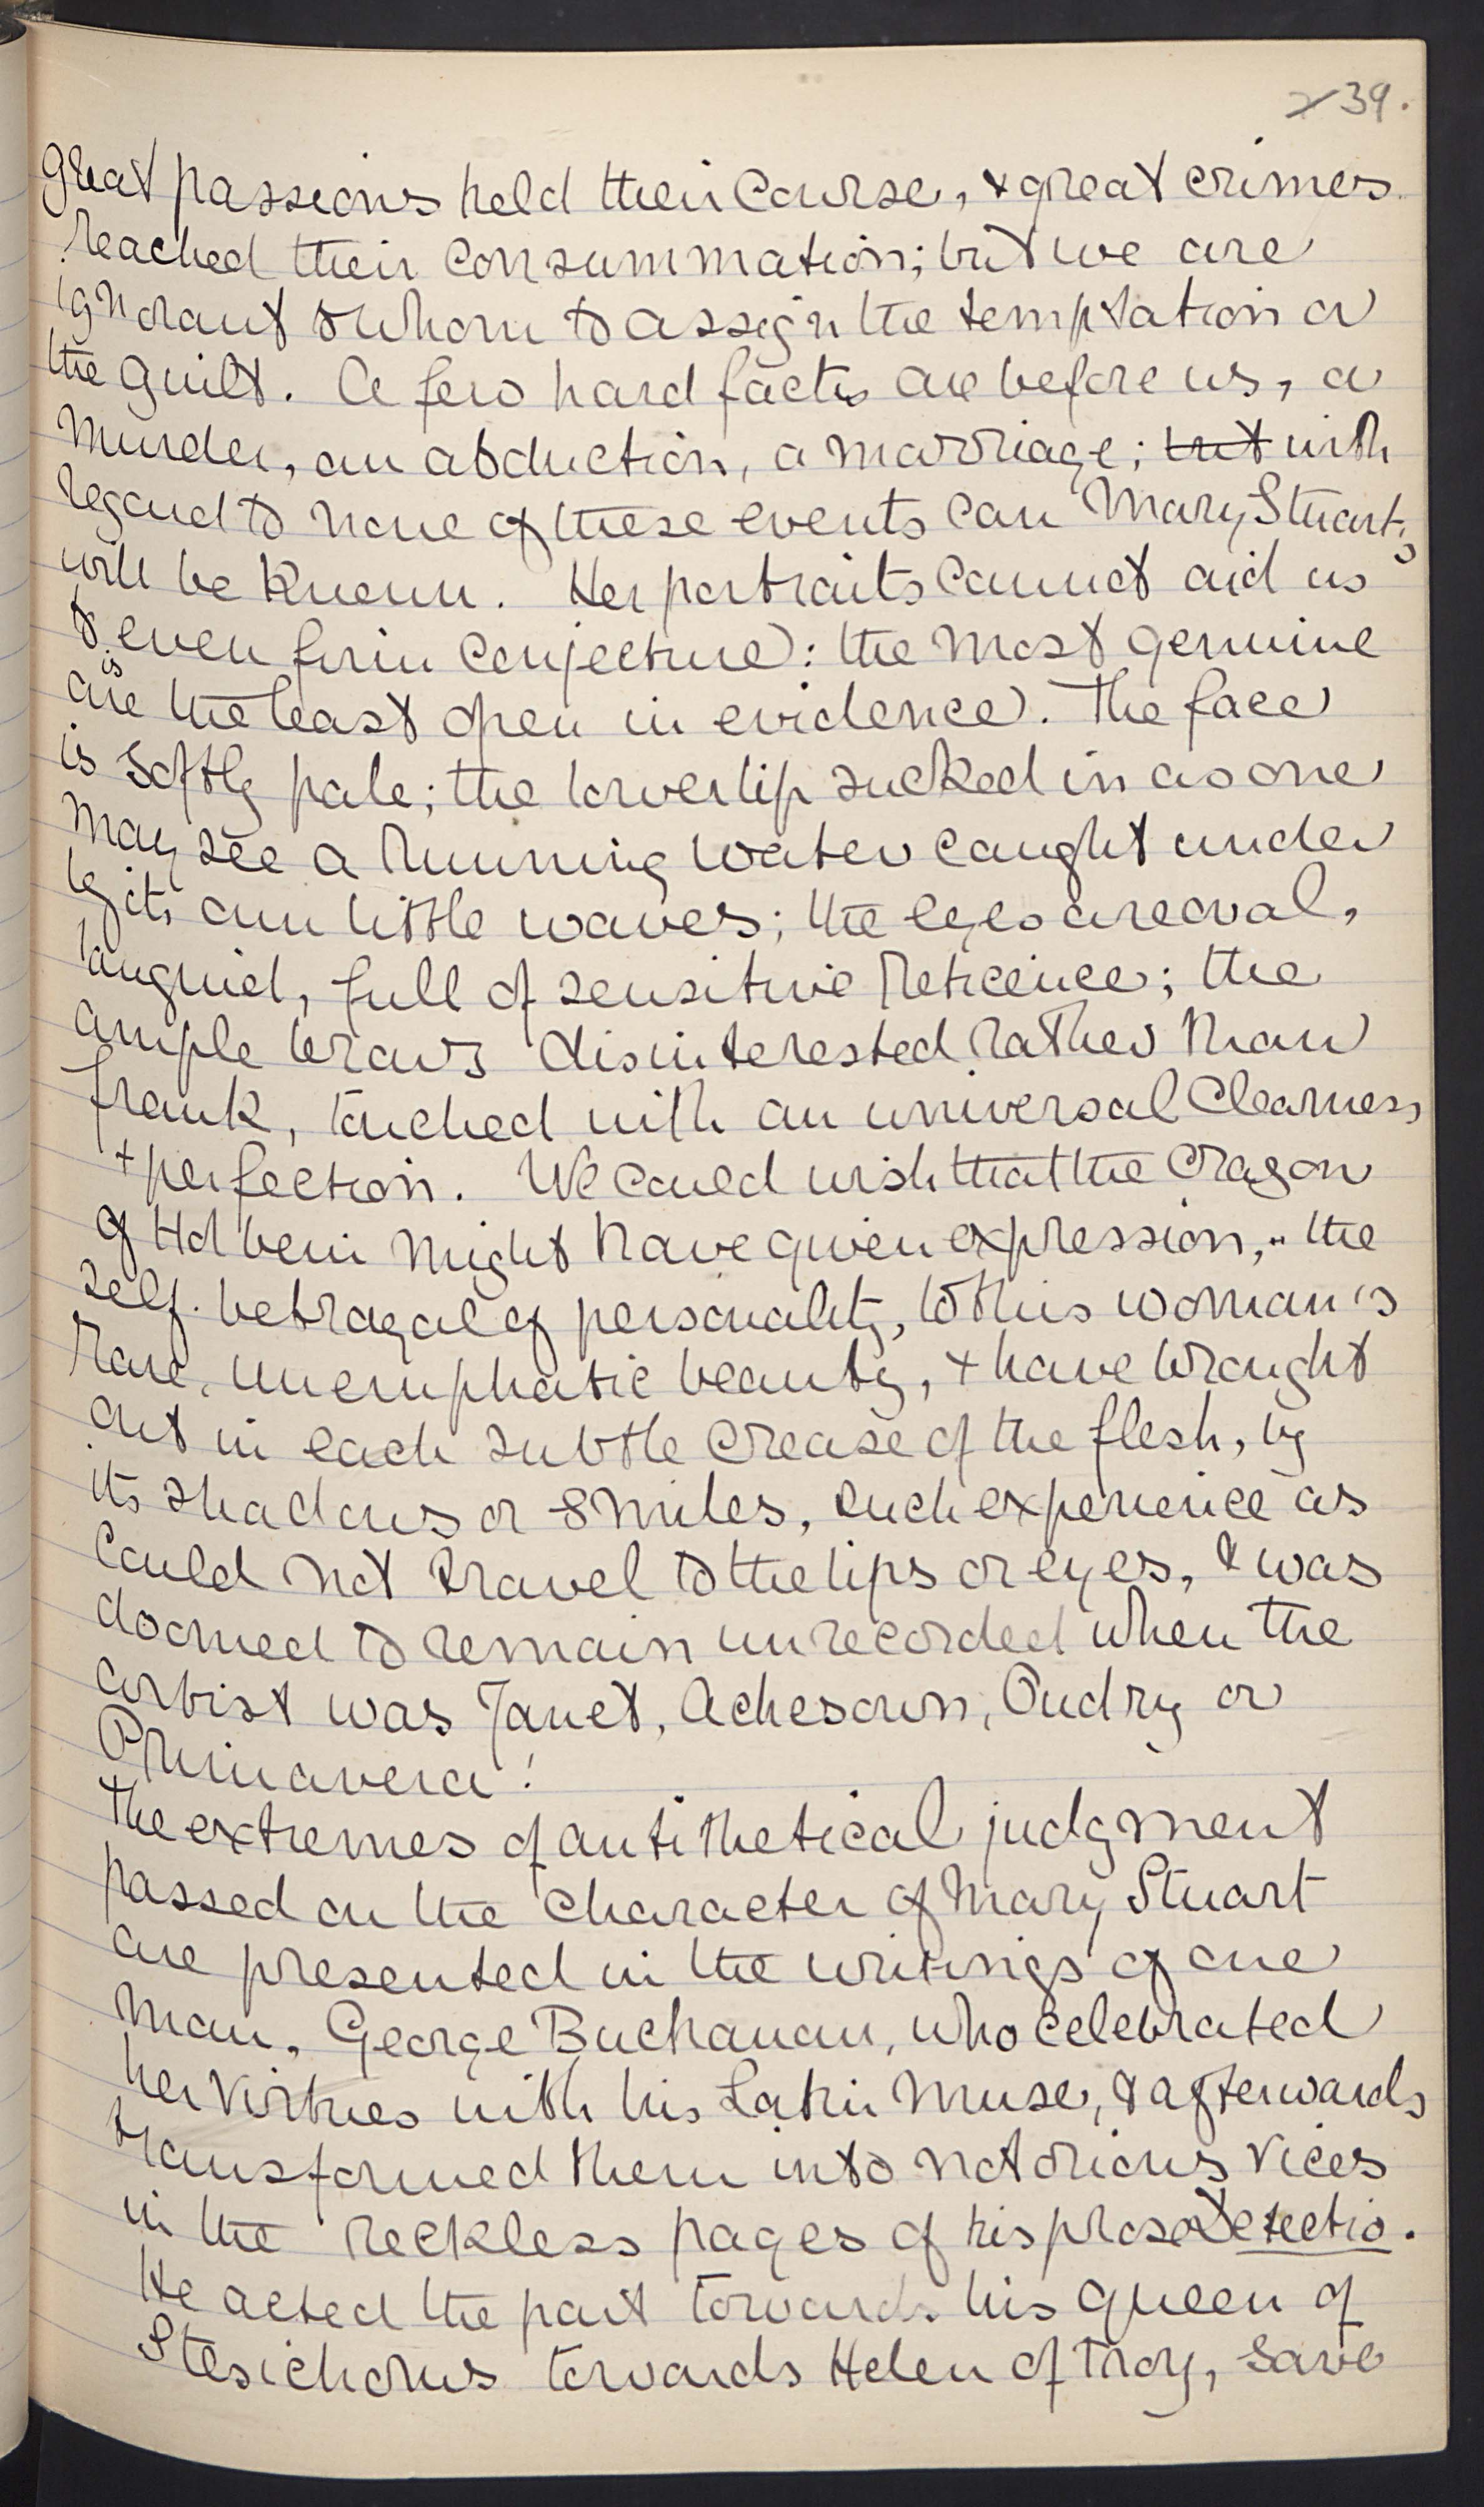 39.
great passions held their course, & great crimes
reached their consummation; but we are
ignorant to whom to assign the temptation or
the guilt. A few hard facts are before us, a
murder, an abduction, a marriage; but with
regard to none of these events can Mary Stuart's
will be known. Her portraits cannot aid us
to even firm conjecture: the most genuine
are is the least open in evidence. The face
is softly pale; the lower lip sucked in as one
may see a running water caught under
by its own little waves; the eyes are oval,
languid, full of sensitive reticence; the
ample brows disinterested rather than
frank, touched with an universal clearness
+ perfection. We could wish that the crayon
of Holbein might have given expression, the
self-betrayal of personality, to this woman's
rare, unemphatic beauty, + have wrought
out in each subtle crease of the flesh, by
its shadows or smiles, such experience as
could not travel to the lips or eyes, & was
doomed to remain unrecorded when the
artist was Janet, Achesown, Oudry or
Primavera!
The extremes of antithetical judgment
passed on the character of Mary Stuart
are presented in the writings of one
man, George Buchanan, who celebrated
her virtues with his Latin muse, & afterwards
transformed them into notorious vices
in the reckless pages of his prose Detectio.
He acted the part towards his queen of
Stesichorus towards Helen of Troy, save